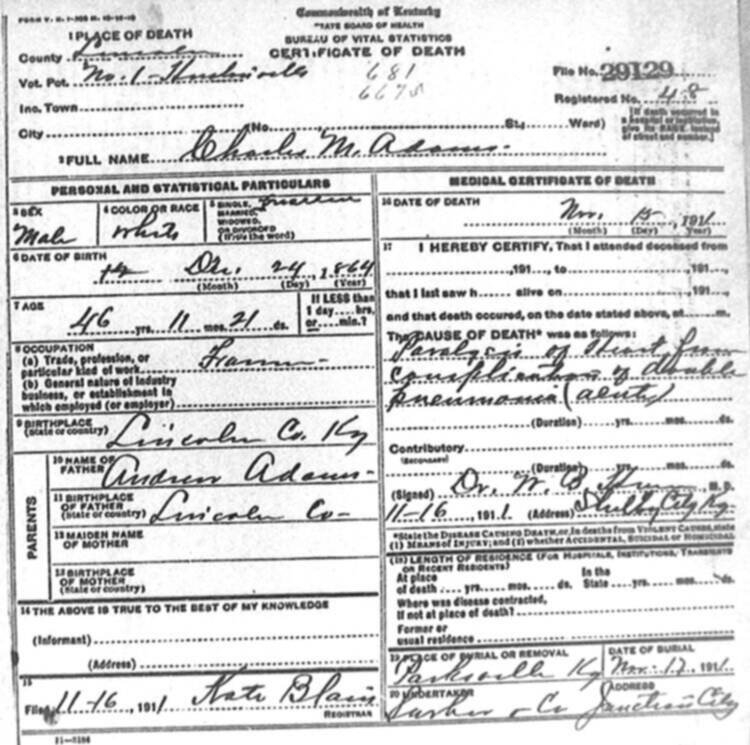 FORM V. S. 1
Commonwealth of Kentucky
STATE BOARD OF HEALTH
BUREAU OF VITAL STATISTICS
CERTIFICATE OF DEATH
1 PLACE OF DEATH
County Lincoln
Vot. Pct. No. 1
681
6675
File No. 29129
Inc. Town
Registered No. 48
City (No. St.; Ward)
[If death occurred in a hospital or institution, give its NAME instead of street and number.]
2 FULL NAME Charles M. Adams
PERSONAL AND STATISTICAL PARTICULARS
3 SEX
Male
4 COLOR OR RACE
White
5 SINGLE, MARRIED, WIDOWED, OR DIVORCED (Write the word)
6 DATE OF BIRTH
Dec. 24, 1864
(Month) (Day) (Year)
7 AGE
46 yrs. 11 mos. 21 ds.
If LESS than 1 day .... hrs. or .... min.?
8 OCCUPATION
(a) Trade, profession, or
particular kind of work Farmer
(b) General nature of industry
business, or establishment in
which employed (or employer)
9 BIRTHPLACE
(State or country) Lincoln Co. Ky
PARENTS
10 NAME OF
FATHER Andrew Adams
11 BIRTHPLACE
OF FATHER
(State or country) Lincoln Co
12 MAIDEN NAME
OF MOTHER
13 BIRTHPLACE
OF MOTHER
(State or country)
14 THE ABOVE IS TRUE TO THE BEST OF MY KNOWLEDGE
(Informant)
(Address)
15
Filed 11-16, 1911 Kate Blain
REGISTRAR
11—3184
MEDICAL CERTIFICATE OF DEATH
16 DATE OF DEATH
Nov. 15, 1911
(Month) (Day) Year
17 I HEREBY CERTIFY, That I attended deceased from
191 , to 191 ,
that I last saw h alive on 191 ,
and that death occured, on the date stated above, at m.
The CAUSE OF DEATH* was as follows:
Paralysis of Heart from
complication of double
pneumonia (acute)
(Duration) yrs. mos. ds.
Contributory
(Secondary)
(Duration) yrs. mos. ds.
(Signed) Dr. W. B. M. D.
11-16, 1911 (Address) Shelby City Ky.
*State the DISEASE CAUSING DEATH, or, in deaths from VIOLENT CAUSES, state
(1) MEANS OF INJURY; and (2) whether ACCIDENTAL, SUICIDAL or HOMICIDAL
(18) LENGTH OF RESIDENCE (FOR HOSPITALS, INSTITUTIONS, TRANSIENTS
OR RECENT RESIDENTS)
At place In the
of death yrs. mos. ds. State yrs. mos. ds.
Where was disease contracted,
If not at place of death?
Former or
usual residence
19 PLACE OF BURIAL OR REMOVAL
Parksville Ky
DATE OF BURIAL
Nov. 17, 1911
20 UNDERTAKER
& Co
ADDRESS
Junction City